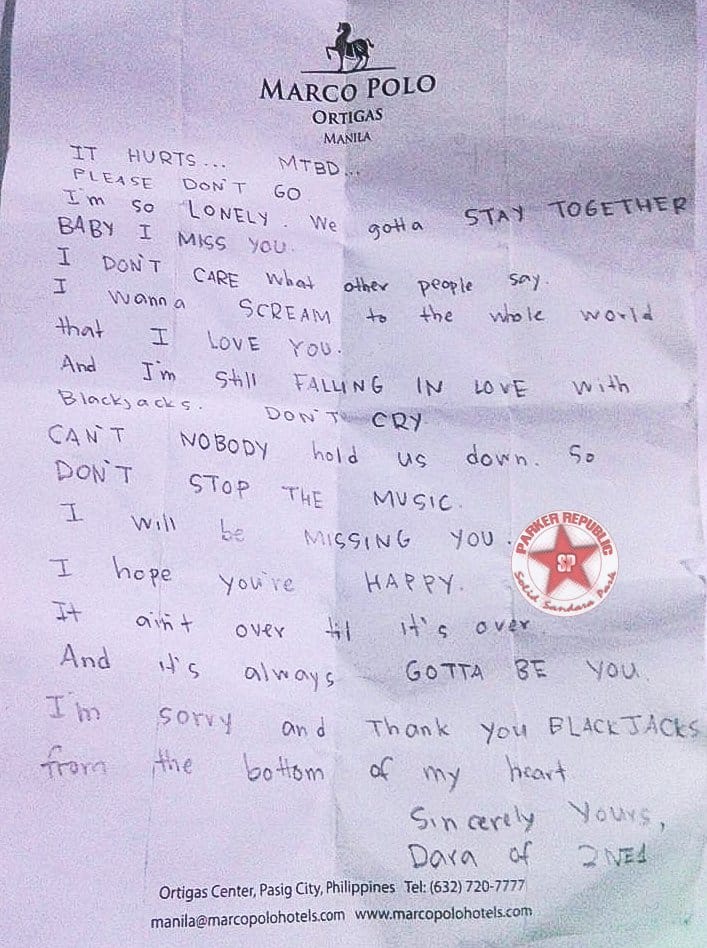 MARCO POLO
ORTIGAS
MANILA
IT HURTS... MTBD...
PLEASE DON'T GO.
I'm so LONELY. We gotta STAY TOGETHER
BABY I MISS YOU.
I DON'T CARE what other people say.
I wanna SCREAM to the whole world
that I LOVE YOU.
And I'm still FALLING IN LOVE with
Blackjacks. DON'T CRY.
CAN'T NOBODY hold us down. So
DON'T STOP THE MUSIC.
I will be MISSING YOU.
PARKER REPUBLIC
SP
Solid Sandara Park
I hope you're HAPPY.
It ain't over til it's over.
And it's always GOTTA BE YOU.
I'm sorry and Thank you BLACKJACKS
from the bottom of my heart
Sincerely Yours,
Dara of 2NE1
Ortigas Center, Pasig City, Philippines Tel: (632) 720-7777
manila@marcopolohotels.com www.marcopolohotels.com